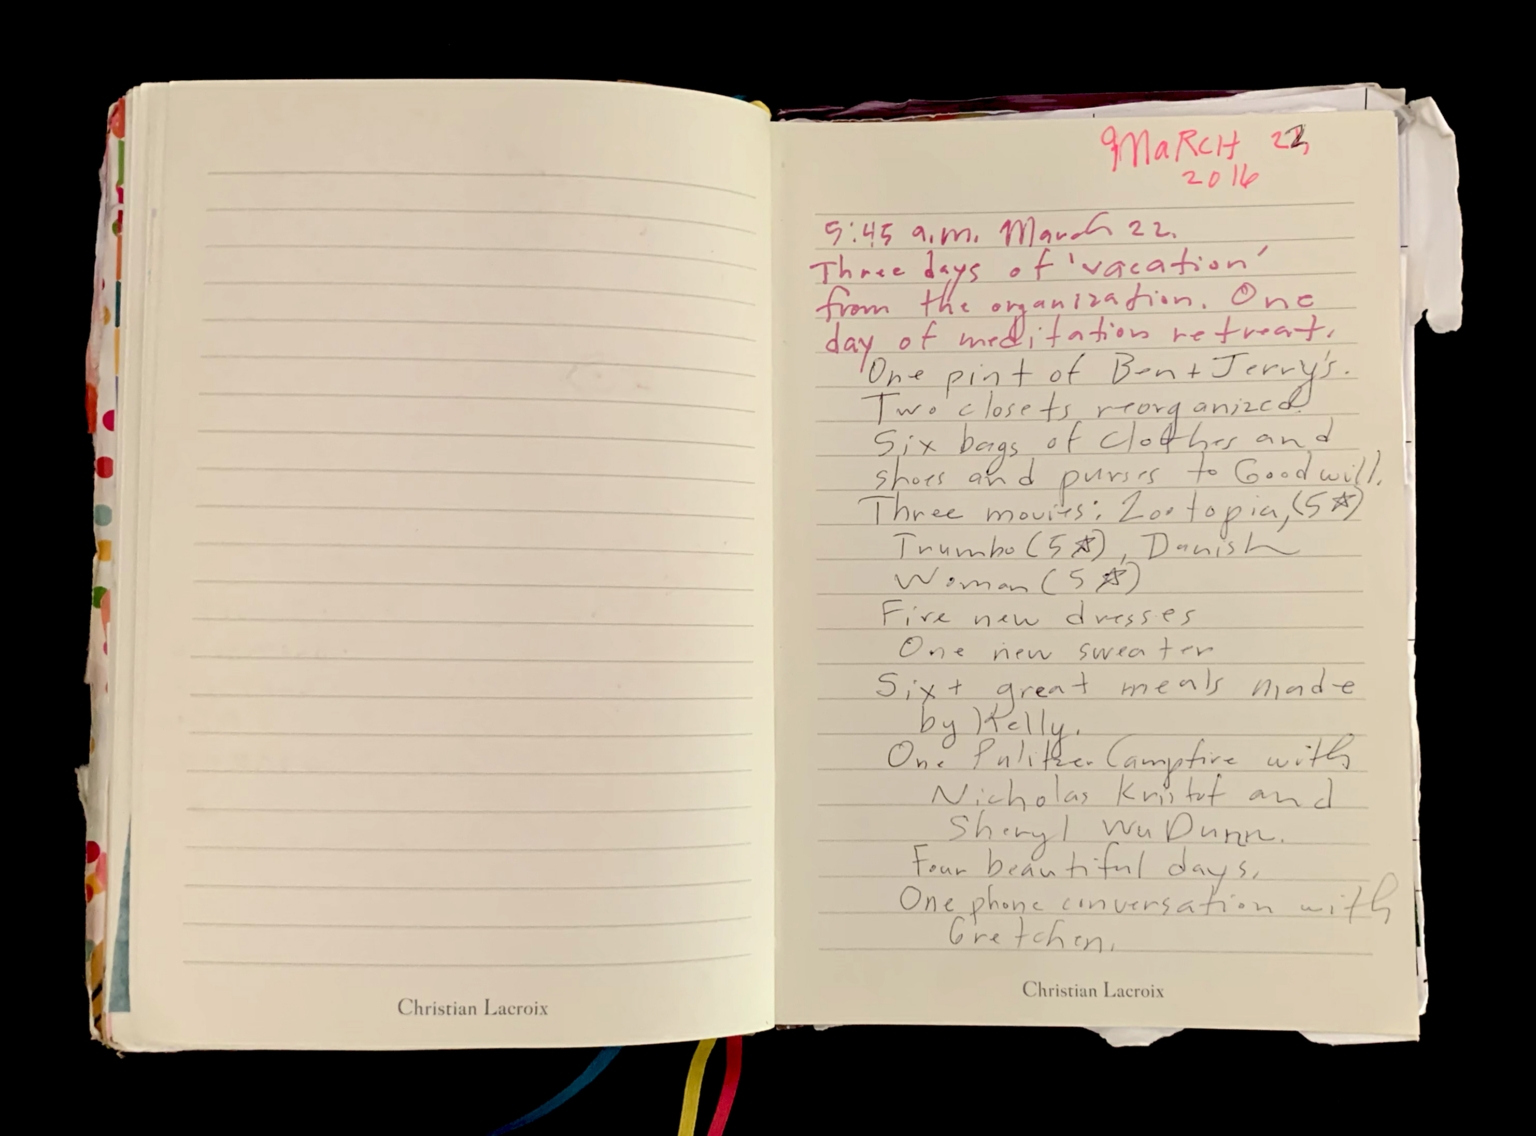 Christian Lacroix
MARCH 22
2016
5:45 a.m. March 22.
Three days of 'vacation'
from the organization. One
day of meditation retreat.
One pint of Ben + Jerry's.
Two closets reorganized.
Six bags of clothes and
shoes and purses to Goodwill.
Three movies: Zootopia, (5☆)
Trumbo (5☆), Danish
Woman (5☆)
Five new dresses
One new sweater
Six+ great meals made
by Kelly.
One Pulitzer Campfire with
Nicholas Kristof and
Sheryl WuDunn.
Four beautiful days.
One phone conversation with
Gretchen.
Christian Lacroix